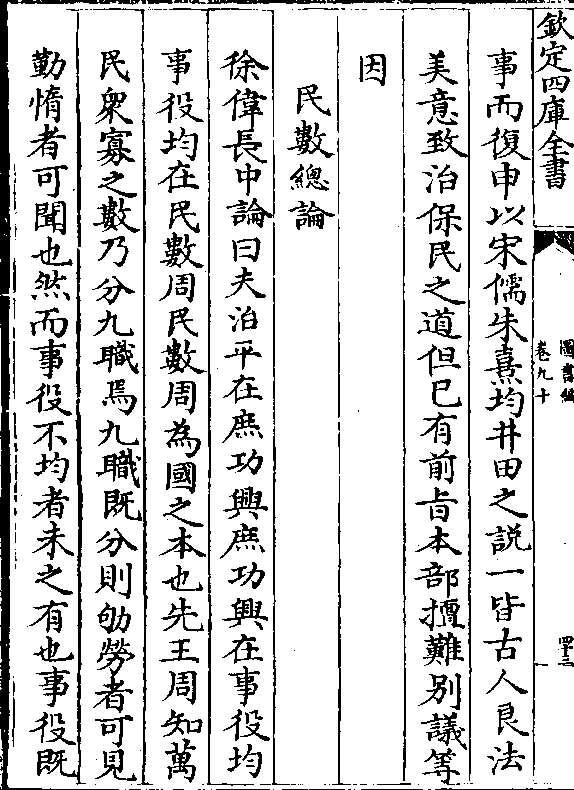 欽定四庫全書
圖書編
卷九十
四十三
事而復申以宋儒朱熹均井田之説一皆古人良法
美意致治保民之道但已有前㫖本部擅難别議等
因
民數總論
徐偉長中論曰夫治平在庶功興庶功興在事役均
事役均在民數周民數周為國之本也先王周知萬
民衆寡之數乃分九職焉九職既分則劬勞者可見
勤惰者可聞也然而事役不均者未之有也事役既